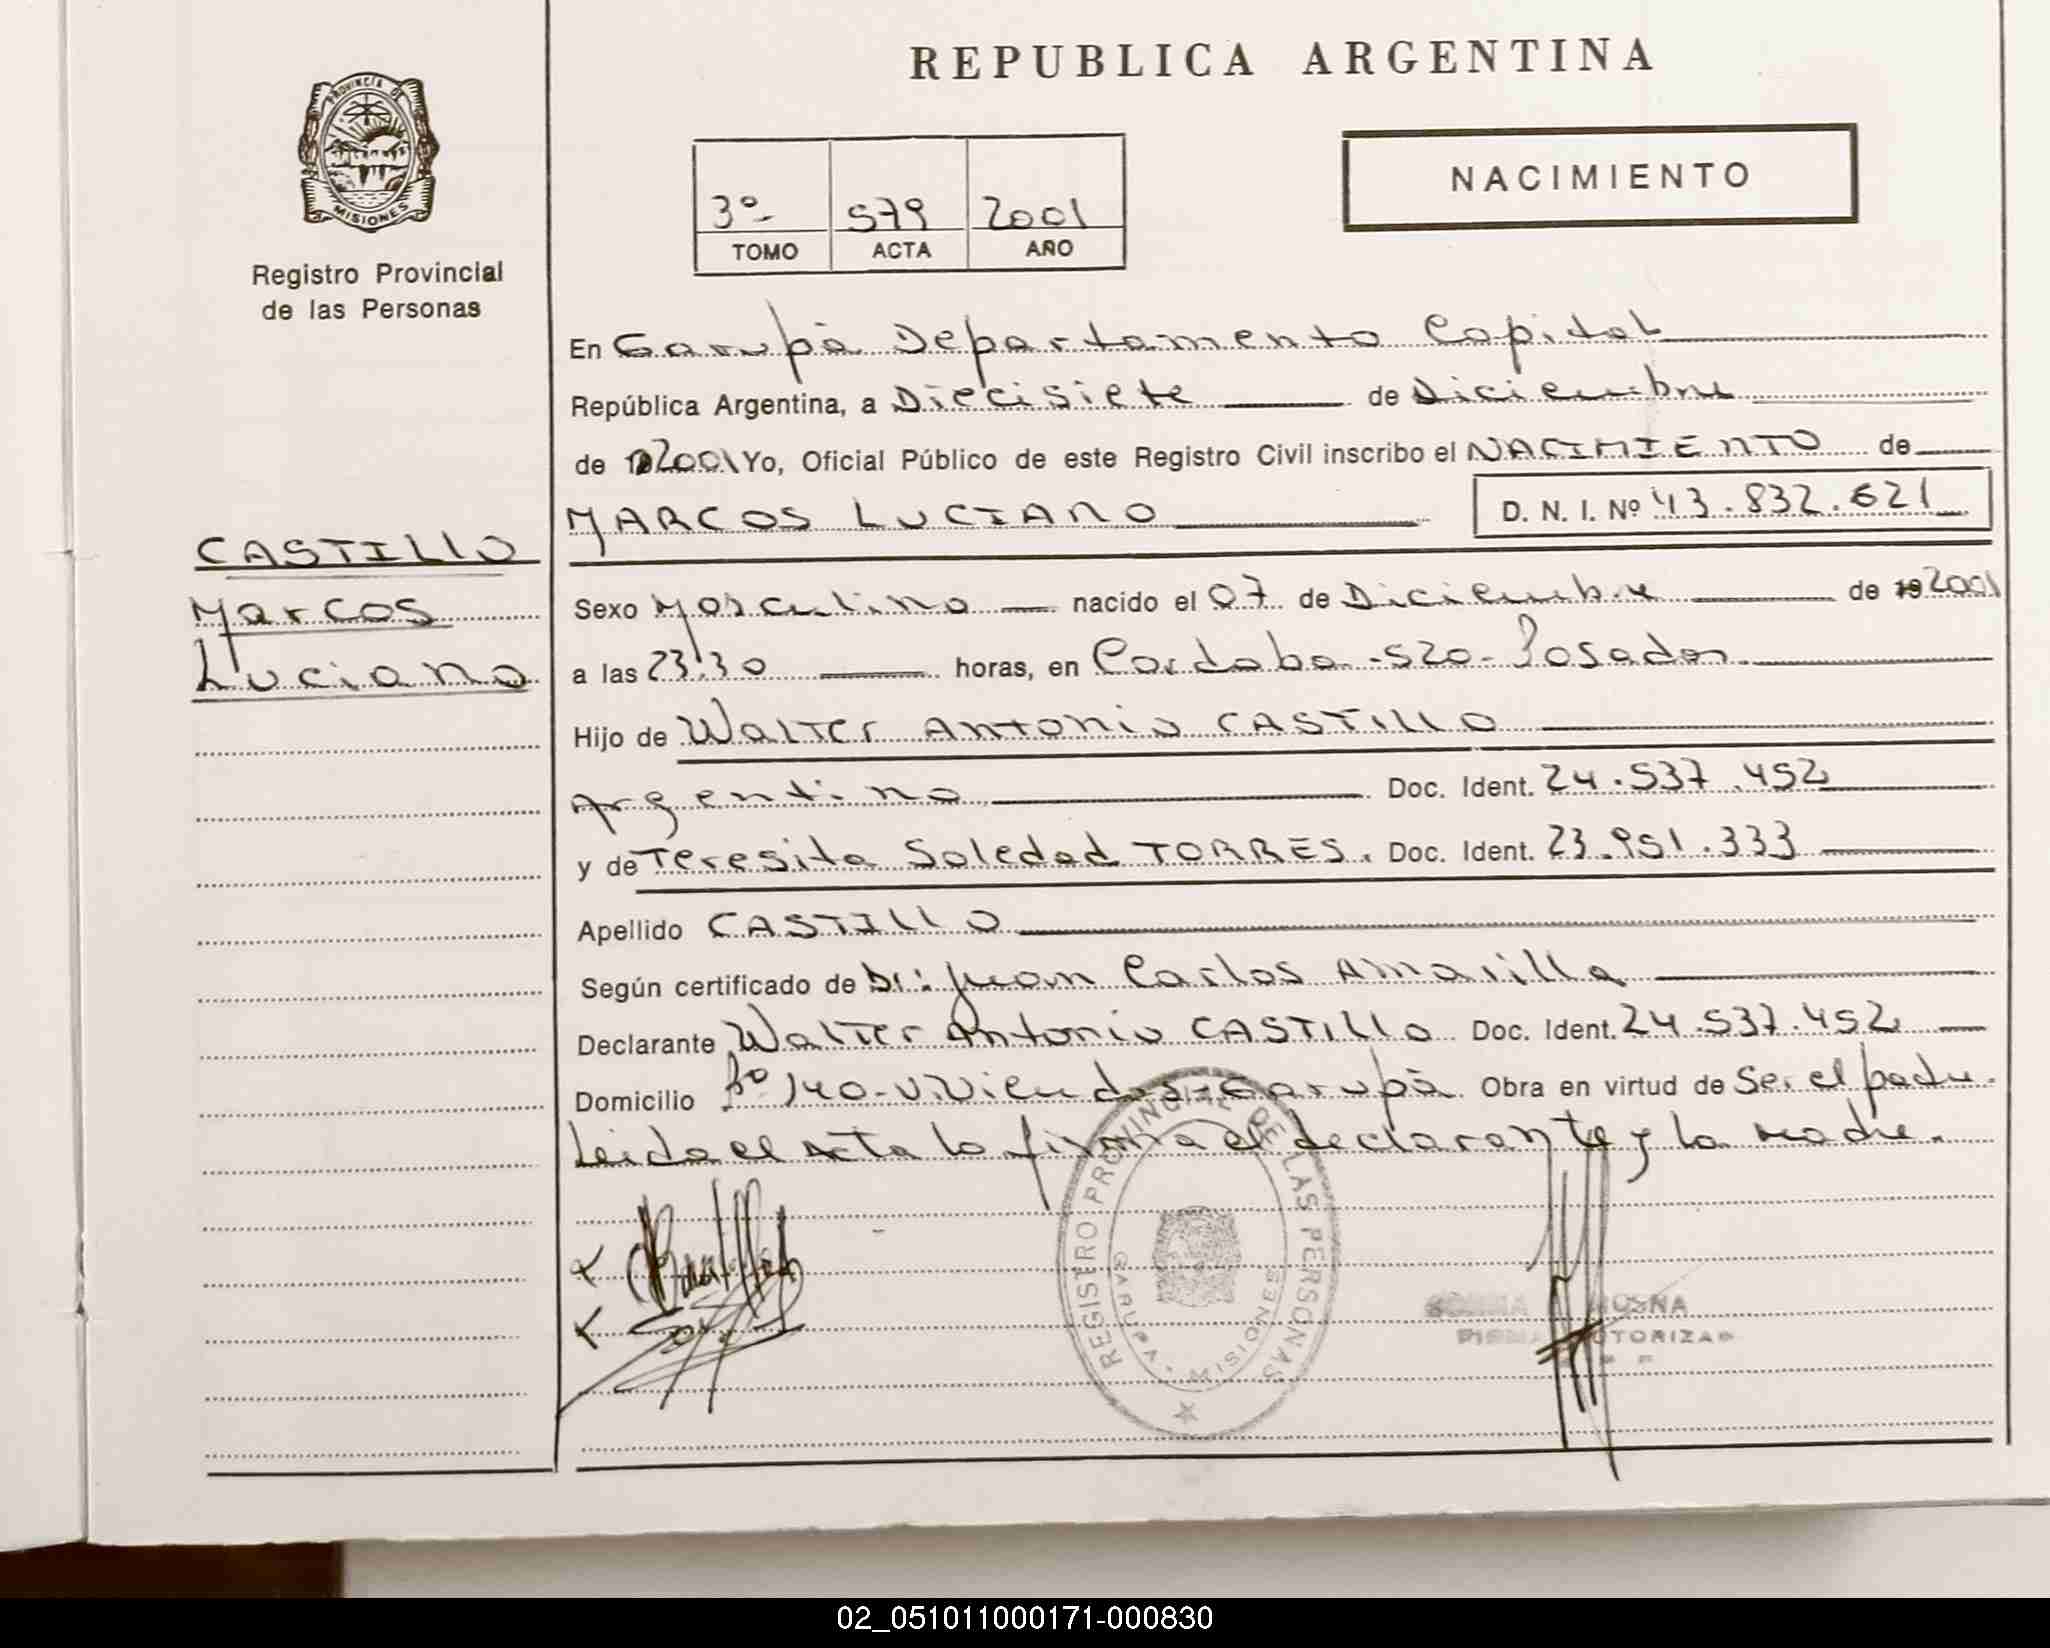 REPUBLICA ARGENTINA
PROVINCIA DE
MISIONES
Registro Provincial
de las Personas
NACIMIENTO
3º 579 2001
TOMO ACTA AÑO
En Garupà Departamento Capital
República Argentina, a Diecisiete de Diciembre
de 2001 Yo, Oficial Público de este Registro Civil inscribo el NACIMIENTO de
MARCOS LUCIANO D. N. I. Nº 43.832.621
CASTILLO
Marcos
Luciano
Sexo Masculino nacido el 07 de Diciembre de 19 2001
a las 23:30 horas, en Cordoba -520- Posadas
Hijo de Walter Antonio CASTILLO
Argentino Doc. Ident. 24.537.452
y de Teresita Soledad TORRES. Doc. Ident. 23.951.333
Apellido CASTILLO
Según certificado de Dr: Juan Carlos Amarilla
Declarante Walter Antonio CASTILLO Doc. Ident. 24.537.452
Domicilio Bº 140-Viviendas-Garupà Obra en virtud de Ser el padre.
Leida el Acta la firma el declarante y la madre.
REGISTRO PROVINCIAL DE LAS PERSONAS
GARUPA MISIONES
02_051011000171-000830